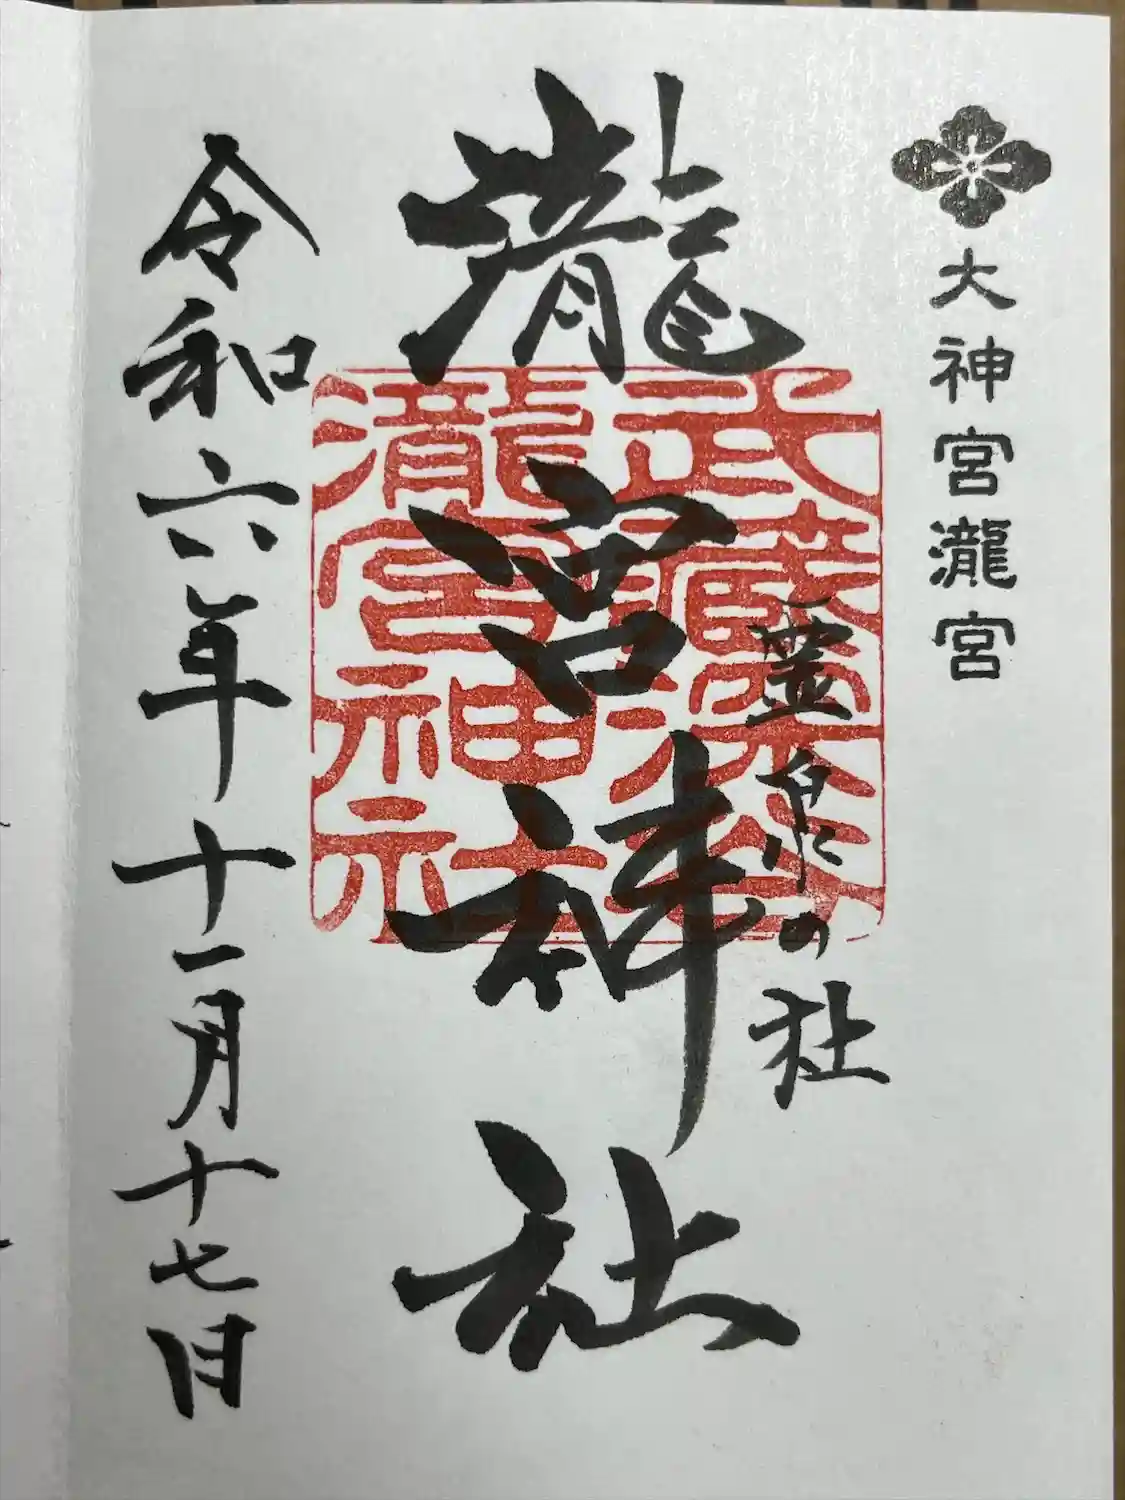 大神宮瀧宮
霊泉の社
瀧宮神社
武蔵
瀧宮神社
令和六年十一月十七日